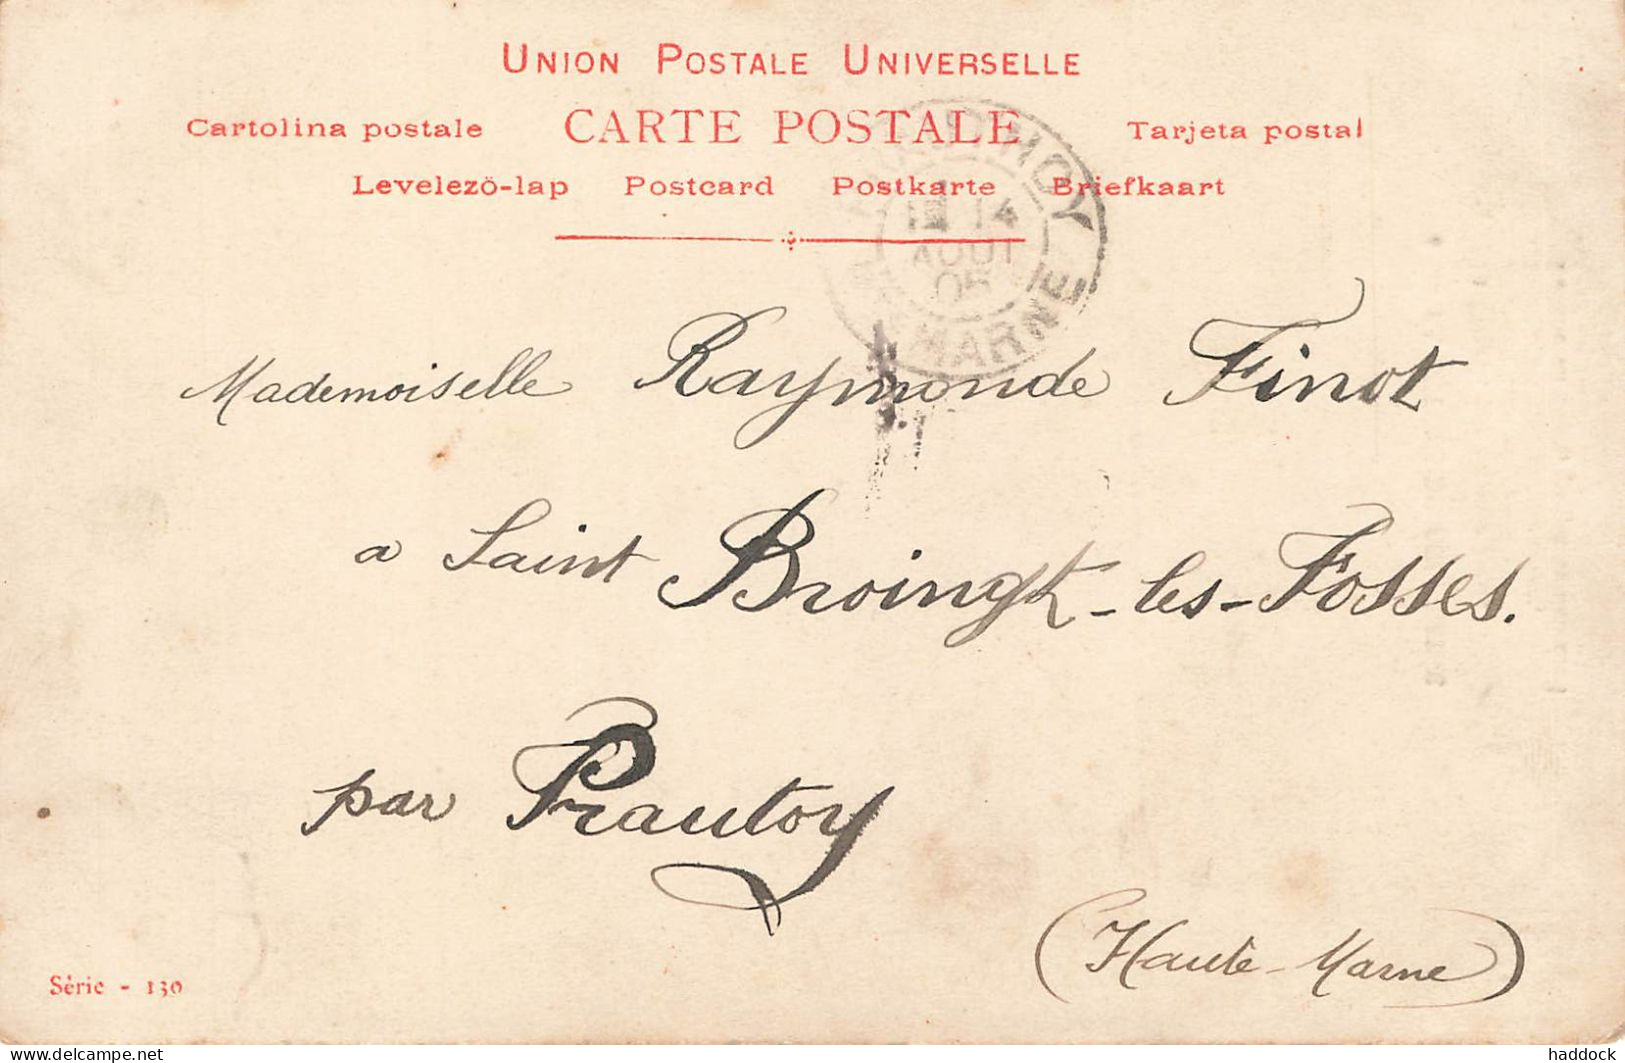 UNION POSTALE UNIVERSELLE
Cartolina postale CARTE POSTALE Tarjeta postal
Levelezö-lap Postcard Postkarte Briefkaart
14
AOUT
05
MARNE
Mademoiselle Raymonde Finot
a Saint Broingt-les-Fosses.
par Prautoy
(Haute-Marne)
Série - 130
www.delcampe.net
haddock